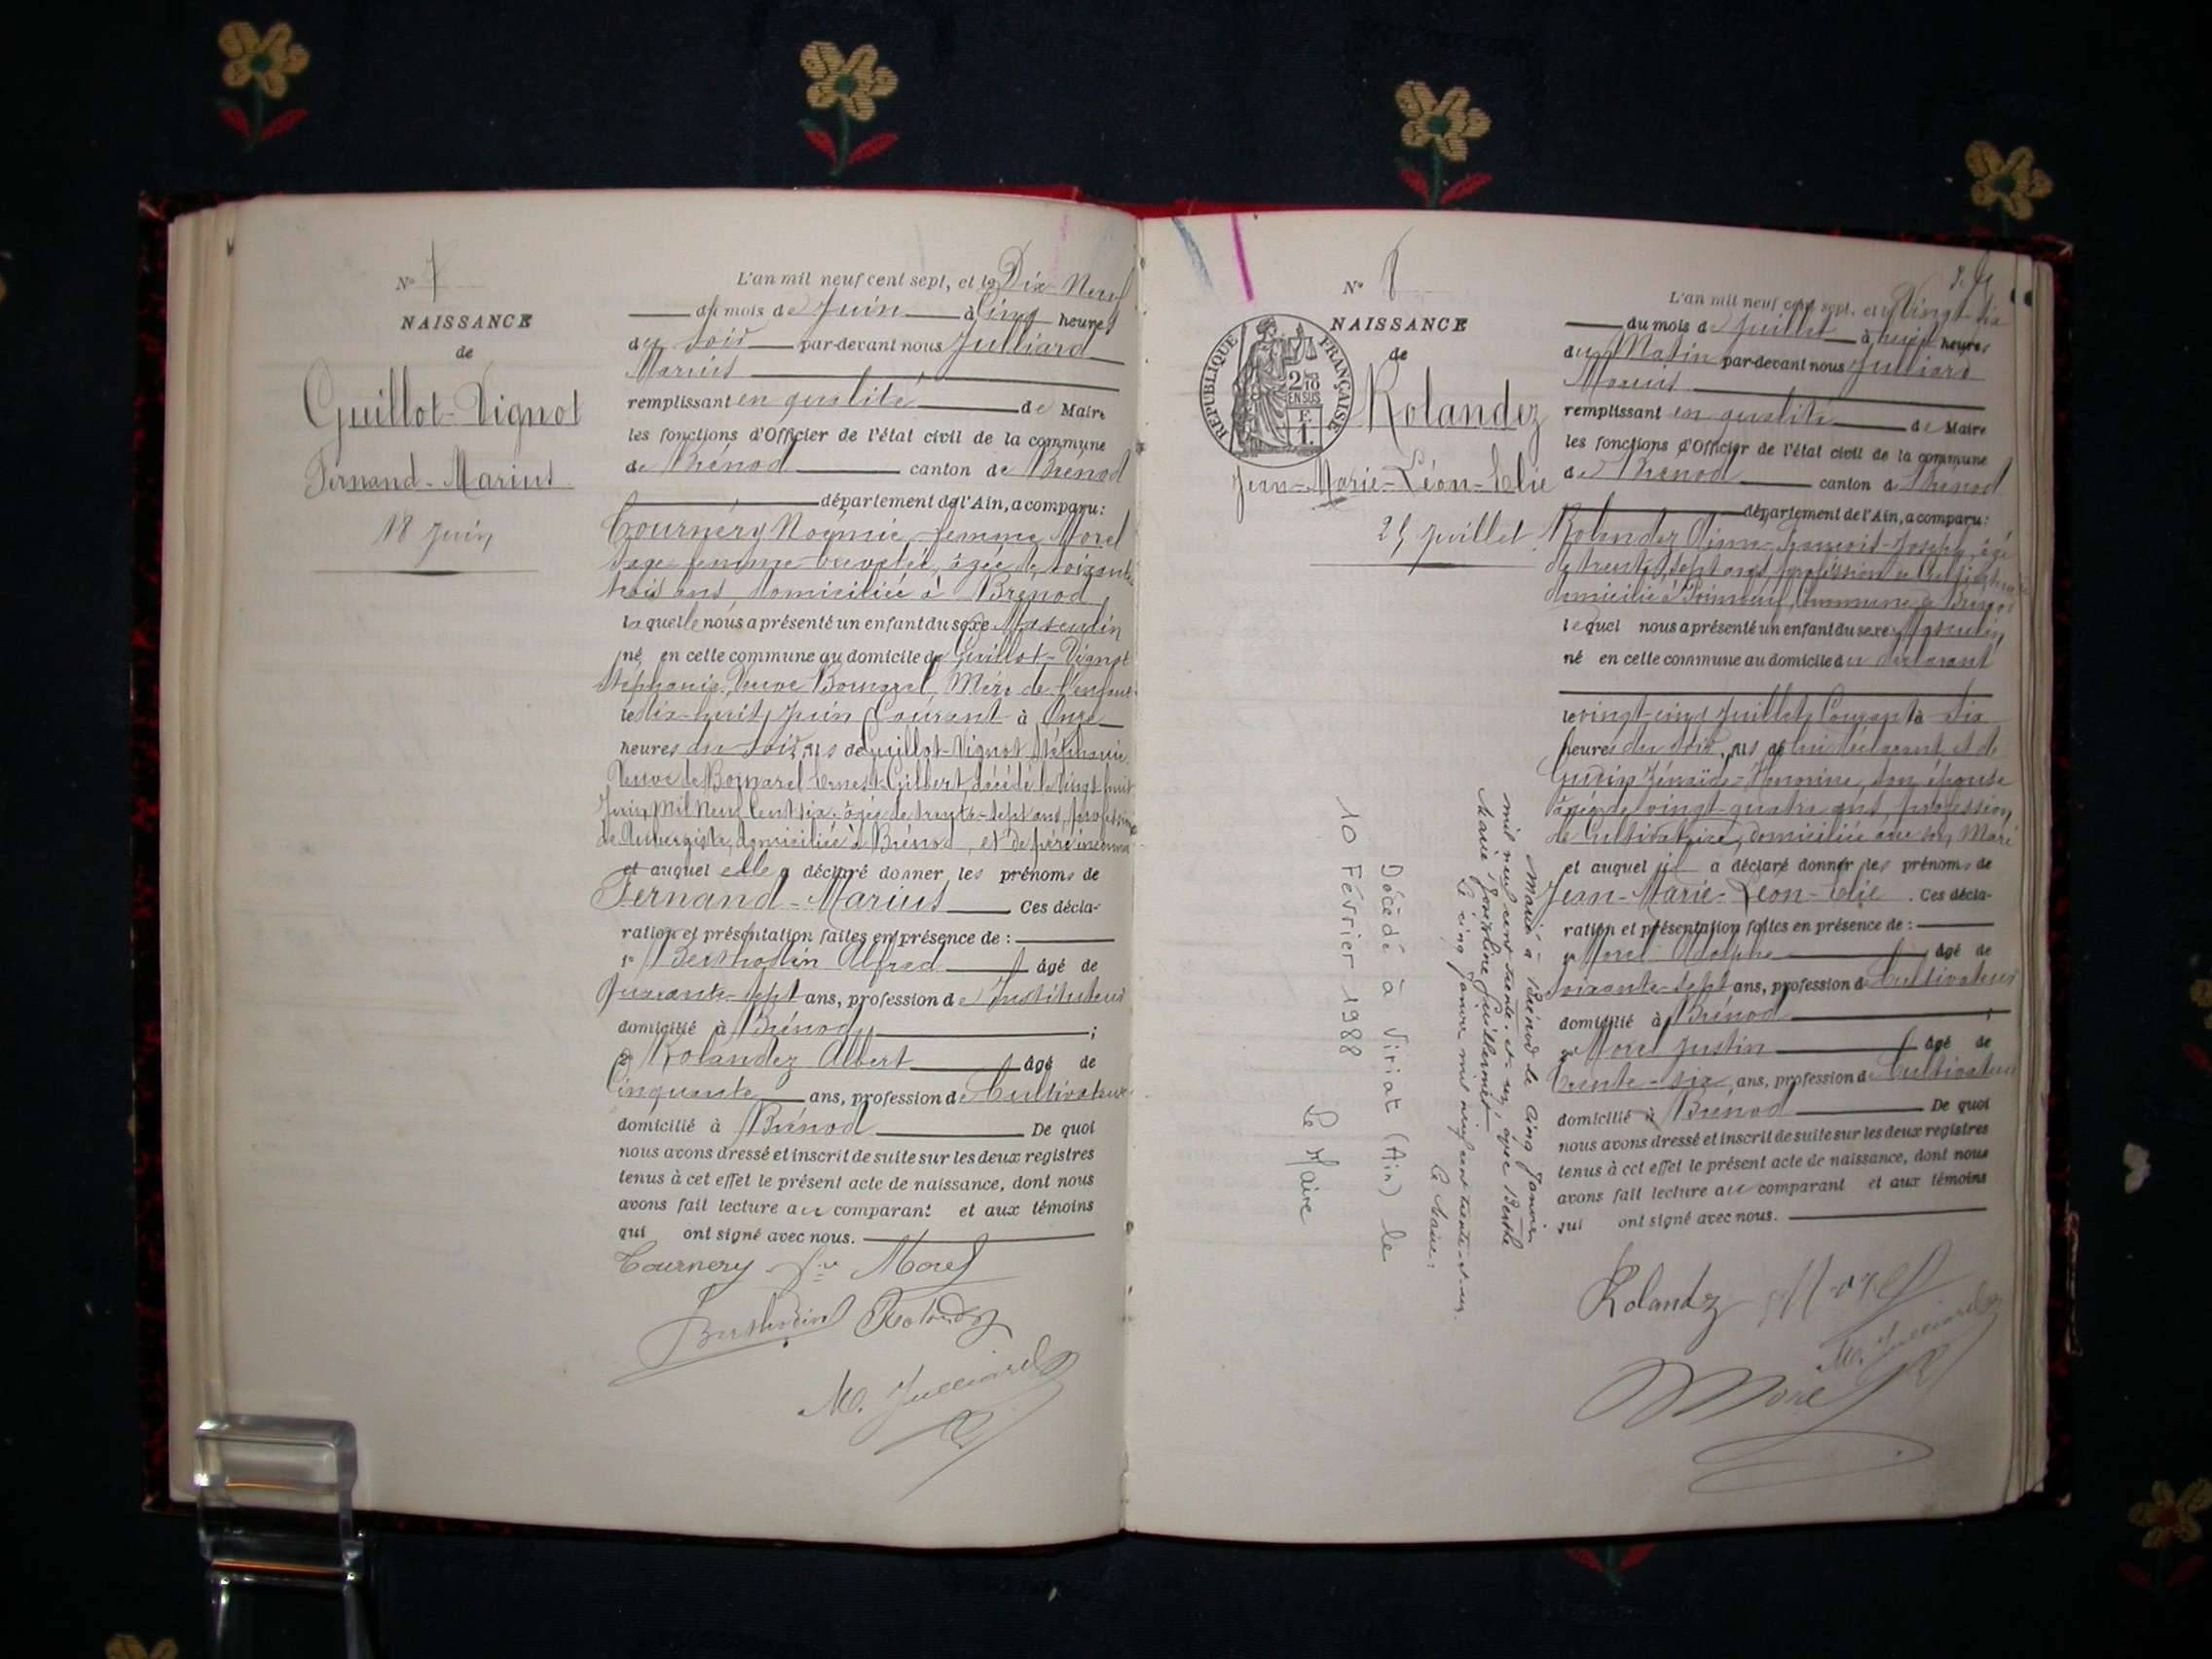 N° 7
NAISSANCE
de
Guillot-Vignot
Fernand-Marius
18 Juin
L'an mil neuf cent sept, et le Dix-Neuf
du mois de Juin à Cinq heures
du soir par-devant nous Julliard
Marius
remplissant en qualité de Maire
les fonctions d'Officier de l'état civil de la commune
de Brénod canton de Brénod
département de l'Ain, a comparu:
Tournery Noémie, femme Morel
sage femme brevetée, âgée de soixante
trois ans, domiciliée à Brénod
laquelle nous a présenté un enfant du sexe Masculin
né en cette commune au domicile de Guillot-Vignot
Stéphanie, Veuve Bomarel, Mère de l'enfant
le dix-huit Juin Courant à Onze
heures du soir, fils de Guillot-Vignot Stéphanie
Veuve de Bomarel Ernest-Gilbert, décédé le Vingt huit
Juin Mil Neuf Cent six, âgée de trente-sept ans, profession
de Aubergiste, domiciliée à Brénod, et de père inconnu
et auquel elle a déclaré donner les prénoms de
Fernand-Marius Ces décla-
ration et présentation faites en présence de :
1° Berthodin Alfred âgé de
Quarante-sept ans, profession de Instituteur
domicilié à Brénod ;
2° Rolandez Albert âgé de
Cinquante ans, profession de Cultivateur
domicilié à Brénod De quoi
nous avons dressé et inscrit de suite sur les deux registres
tenus à cet effet le présent acte de naissance, dont nous
avons fait lecture au comparant et aux témoins
qui ont signé avec nous.
Tournery fe Morel
Berthodin Rolandez
M. Julliard
N° 8
NAISSANCE
de
RÉPUBLIQUE FRANÇAISE
2/10
EN SUS
F.
1.
Rolandez
Jean-Marie-Léon-Elie
25 Juillet
L'an mil neuf cent sept, et le Vingt-six
du mois de Juillet à huit heures
du Matin par-devant nous Julliard
Marius
remplissant en qualité de Maire
les fonctions d'Officier de l'état civil de la commune
de Brénod canton de Brénod
département de l'Ain, a comparu:
Rolandez Aimé-François-Joseph, âgé
de trente sept ans, profession de Cultivateur
domicilié à commune de Brénod
lequel nous a présenté un enfant du sexe Masculin
né en cette commune au domicile du déclarant
le vingt-cinq Juillet Courant à six
heures du soir, fils de lui déclarant et de
Zénaïde-Honorine, son épouse
âgée de vingt-quatre ans, profession
de Cultivatrice, domiciliée avec son Mari
et auquel il a déclaré donner les prénoms de
Jean-Marie-Léon-Elie. Ces décla-
ration et présentation faites en présence de :
1° Morel Adolphe âgé de
soixante-sept ans, profession de Cultivateur
domicilié à Brénod ;
2° Morel Justin âgé de
trente-six ans, profession de Cultivateur
domicilié à Brénod De quoi
nous avons dressé et inscrit de suite sur les deux registres
tenus à cet effet le présent acte de naissance, dont nous
avons fait lecture au comparant et aux témoins
qui ont signé avec nous.
Rolandez Morel
M. Julliard
Morel
Marié à Brénod le cinq Janvier
mil neuf cent trente-et-un, avec Berthe
Marie Joséphine Guillermet
Le cinq Janvier mil neuf cent trente-et-un.
Le Maire:
Décédé à Viriat (Ain) le
10 Février 1988
Le Maire